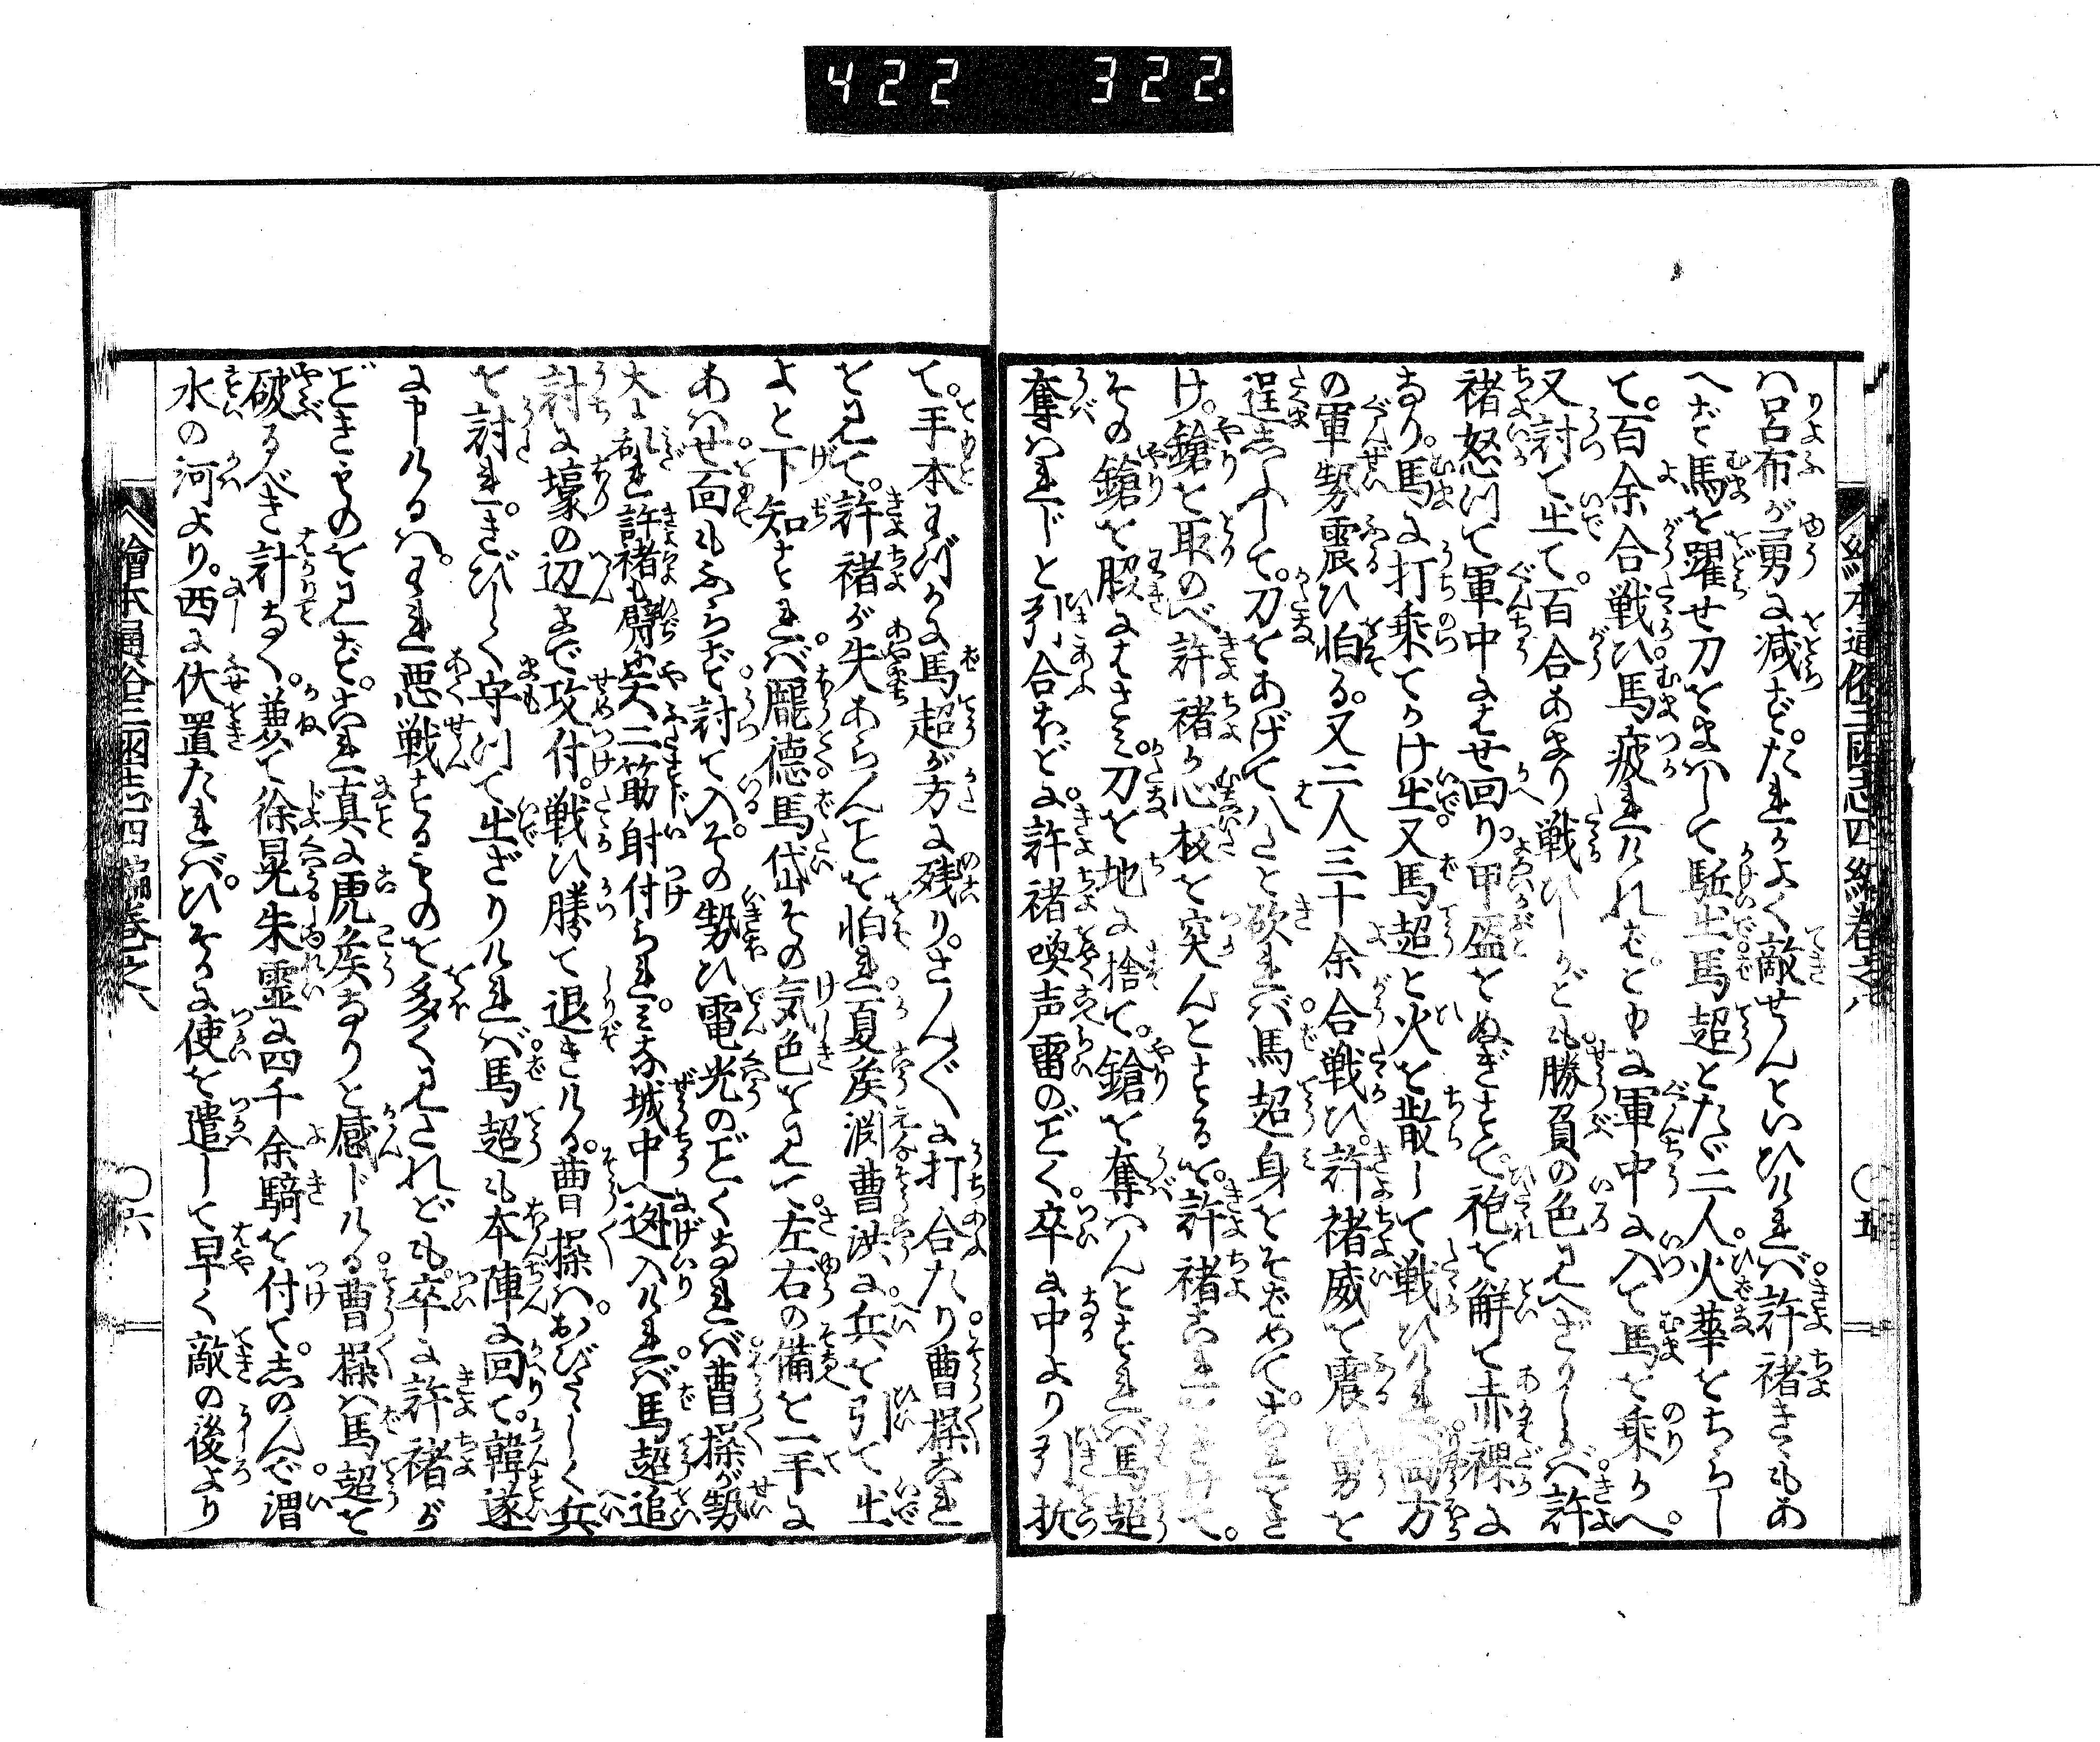 422 322.
繪本通俗三國志四編卷之八 〇五
ハ呂布が勇に減ぜず。たれかよく敵せんといひければ許褚きゝもあ
へず馬を躍せ刀をまはして駈出馬超とたゞ二人。火華をちらし
て。百余合戦ひ馬疲れければ。ともに軍中に入て馬を乗かへ。
又討て出て。百合あまり戦ひしかども勝負の色見へざりしかば許
褚怒つて軍中にはせ回り。甲盔をぬぎすて。袍を解て赤裸に
なり。馬に打乗てかけ出。又馬超と火を散して戦ひければ両方
の軍勢震ひ怕る。又二人三十余合戦ひ。許褚威て震ひ勇を
逞しふして。刀をあげて八と砍れば馬超身をそばめてこれをさ
け。鎗を取のべ許褚が心板を突んとする。を。許褚これをさけて。
その鎗を脇にはさみ。刀を地に捨て。鎗を奪ハんとすれば馬超
奪はれじと引合ほどに。許褚喚声雷のごとく。卒に中より引折
て。手本わづかに馬超が方に残り。さん〴〵に打合たり。曹操これ
を見て。許褚が失あらんことを怕れ。夏矦渕曹洪に兵を引て出
よと下知すれば。龐徳馬岱その気色を見て。左右の備を一手に
あはせ。面もふらず討て入。その勢ひ電光のごとくなれば曹操が勢
大に乱れ許褚も臂に矢二筋射付られ。みな城中へ迯入ければ馬超追
討に壕の辺まで攻付。戦ひ勝て退きける。曹操ハ。おびたゝしく兵
を討れ。きびしく守つて出ざりければ。馬超も本陣に回て。韓遂
に申けるハ。われ悪戦するものを多く見たれども。卒に許褚が
ごときものを見ず。これ真に虎矦なりと感じける。曹操ハ馬超を
破るべき計なく。兼て徐晃朱霊に四千余騎を付て。しのんで渭
水の河より。西に伏置たれば。ひそかに使を遣して早く敵の後より
繪本通俗三國志四編卷之八 〇六